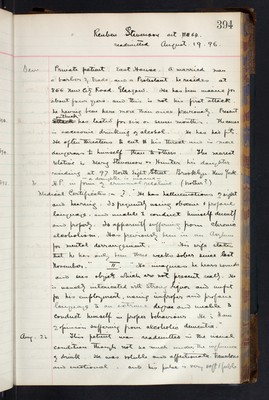 394
Reuben Stevenson act 1866.
readmitted August 19. 96.
Private patient East House. A married man
a barber by trade, and a Protestant he resides at
366 New City Road. Glasgow. He has been insane for
about four years and this is not his first attack
he having been here more than once previously. Present
attack has lasted for six or seven months.
is excessive drinking of alcohol. He has had fits
He often threatens to cut his throat and is more
dangerous to himself than to others. The nearest
relative is Mary Stevenson or Hunter his daughter
residing at 97 North Eight Street Brooklyn New York.
Medical Certificates - I. He has hallucinations of sight
and hearing. Is frequently using obscene & profane
language, and unable to conduct himself decently
and properly. Is apparently suffering from chronic
alcoholism. Has previously been in an Asylum
for mental derangement. His wife states
that he has only been three weeks sober since last
November. II. He imagines he hears sounds
and sees objects which are not present really. He
is usually intoxicated with strong liquor and unfit
for his employment, using improper and profane
language to an extreme degree and unable to
conduct himself in proper behaviour. He is
opinion suffering from alcoholic dementia.
Aug. 22 This patient was readmitted in the usual
condition though not so much under the influence
of drink. He was voluble and affectionate,
and emotional and his pulse is very soft &